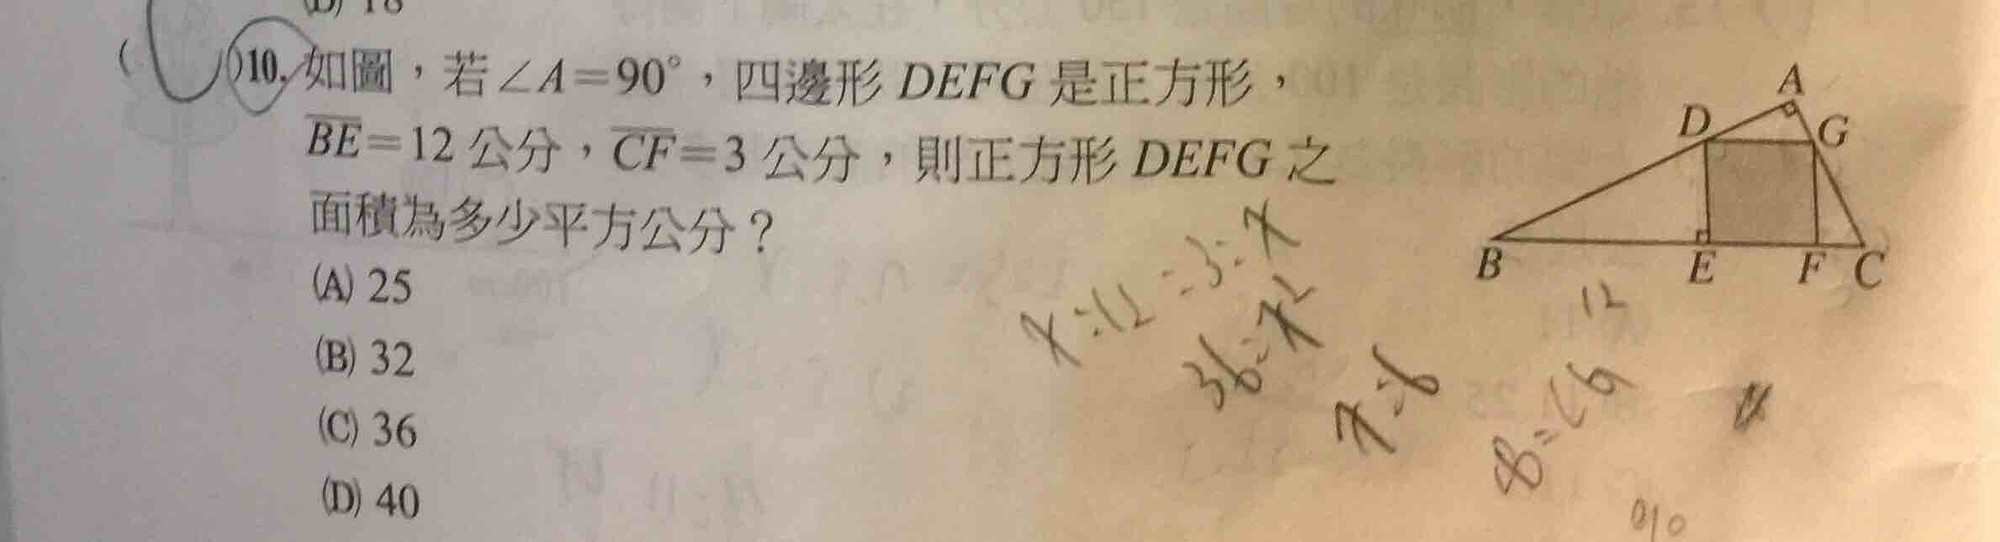 (D) 18
( )10. 如圖，若∠A=90°，四邊形 DEFG 是正方形，
BE=12 公分，CF=3 公分，則正方形 DEFG 之
面積為多少平方公分？
(A) 25
(B) 32
(C) 36
(D) 40
A
D
G
B
E
F
C
x:12=3:x
36=x²
x=6
12